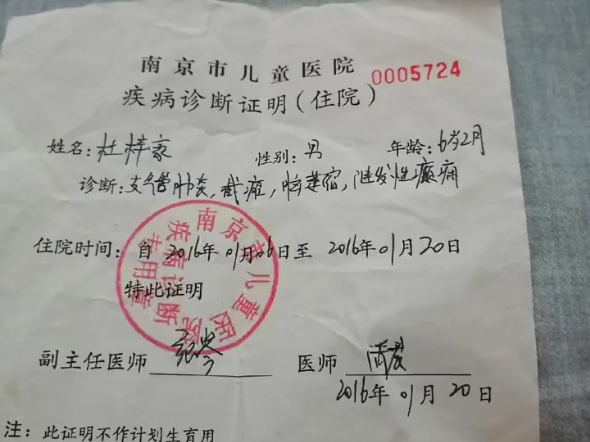 南京市儿童医院 0005724
疾病诊断证明(住院)
姓名:杜梓豪 性别:男 年龄:6岁2月
诊断:支气管肺炎,截瘫,脑萎缩,继发性癫痫
住院时间:自 2016年01月06日至 2016年01月20日
特此证明
南京市儿童医院
疾病诊断
专用章
副主任医师 医师
2016年01月20日
注:此证明不作计划生育用